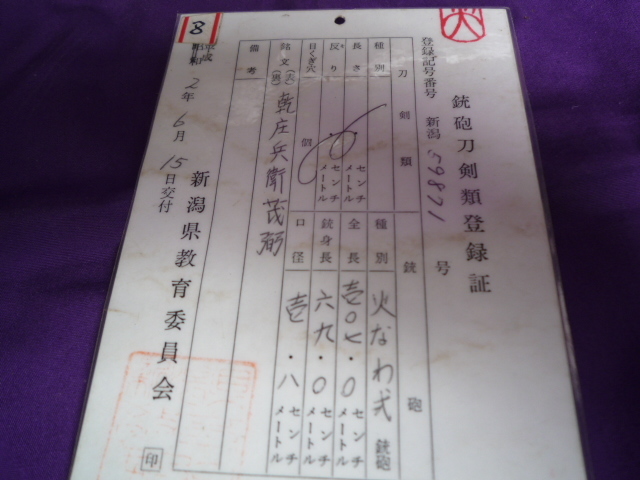 銃砲刀剣類登録証
登録記号番号 新潟 59871 号
刀剣類
種別
長さ センチメートル
反り センチメートル
目くぎ穴 個
銃砲
種別 火なわ式 銃砲
全長 壱〇七・〇 センチメートル
銃身長 六九・〇 センチメートル
口径 壱・八 センチメートル
銘文 (表) (裏) 乾庄兵衛茂弼
備考
平成
昭和 2年6月15日交付
新潟県教育委員会 印
8